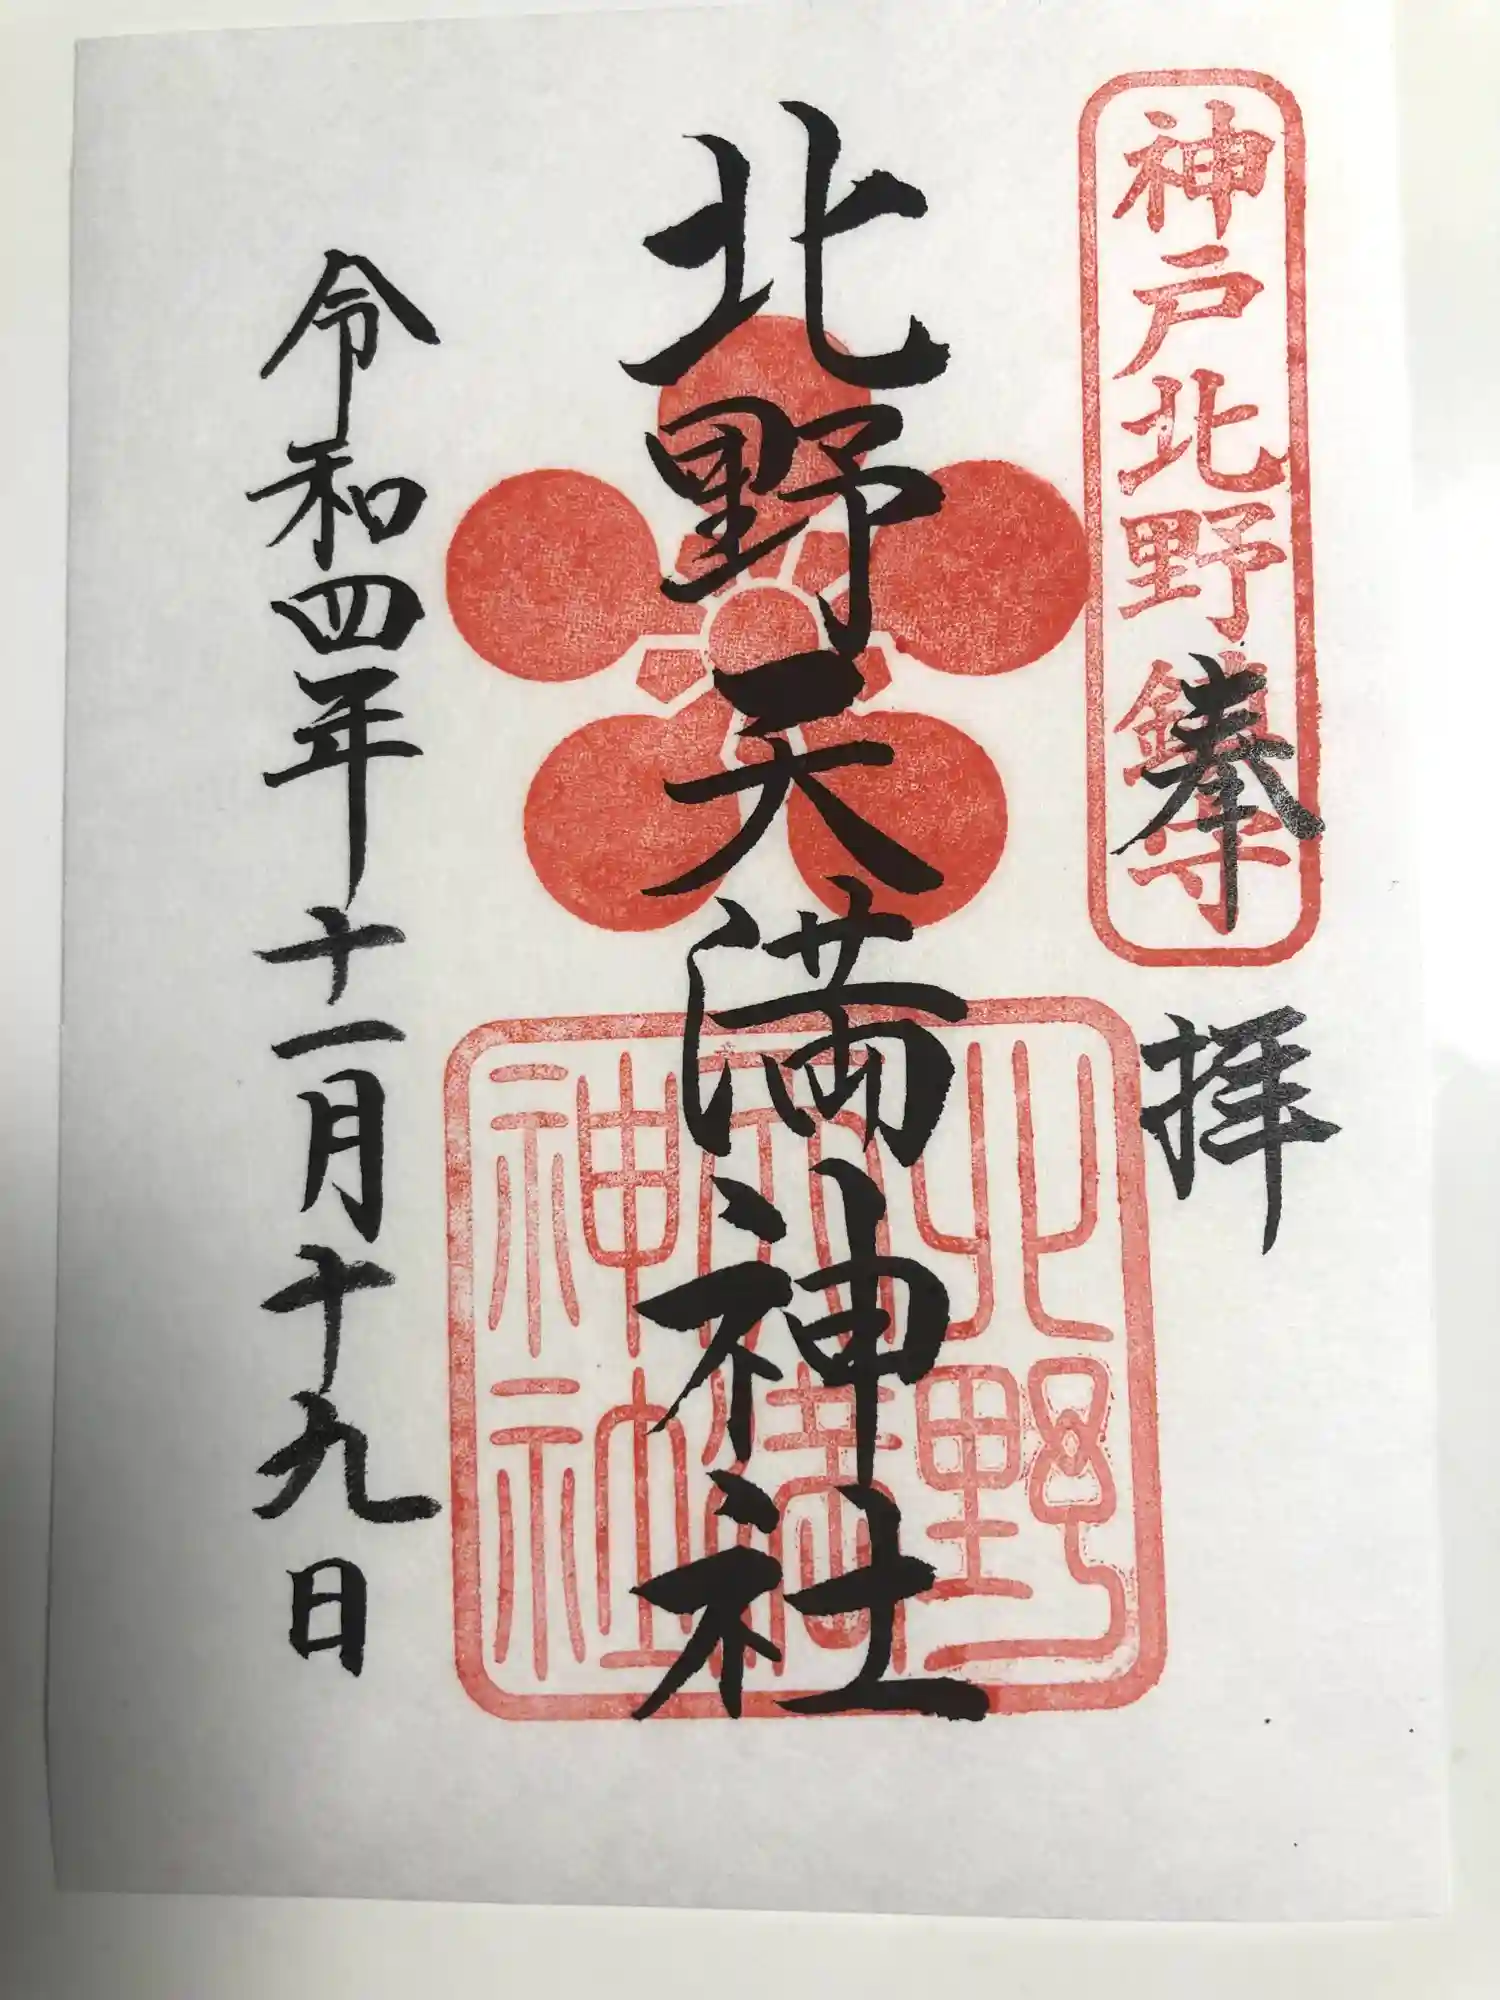 神戸北野鎮守
奉拝
北野天満神社
北野
天満
神社
令和四年十一月十九日